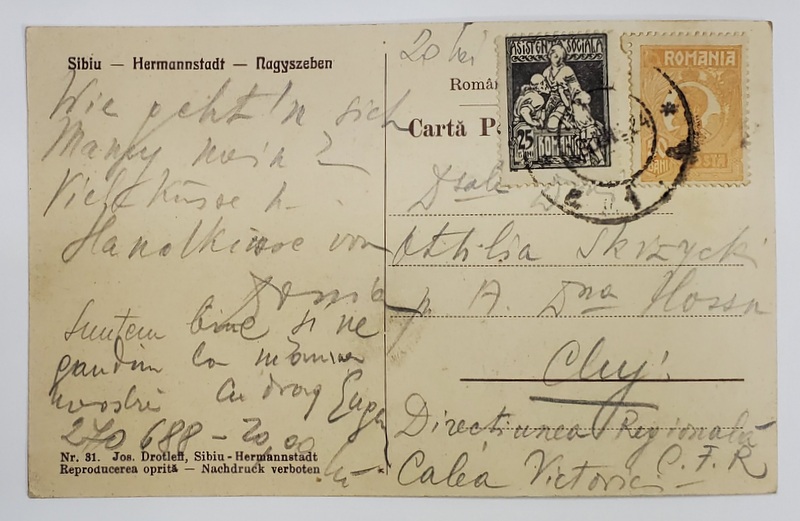 Sibiu — Hermannstadt — Nagyszeben
Wie geht's sich
Viele Küsse
Handküsse von
Suntem bine și ne
gandim la
Cu drag Eugen
270 688 - 20,00
lei
Nr. 31. Jos. Drotleff, Sibiu - Hermannstadt
Reproducerea oprită — Nachdruck verboten
20 lei
Român
Cartă Po
ASISTENȚA SOCIALA
25
BANI
ROMANIA
ROMANIA
BANI
POSTA
24
Otthilia Skrzycki
p. A. Dna Hossu
Cluj
Direcțiunea Regională
C. F. R.
Calea Victoriei